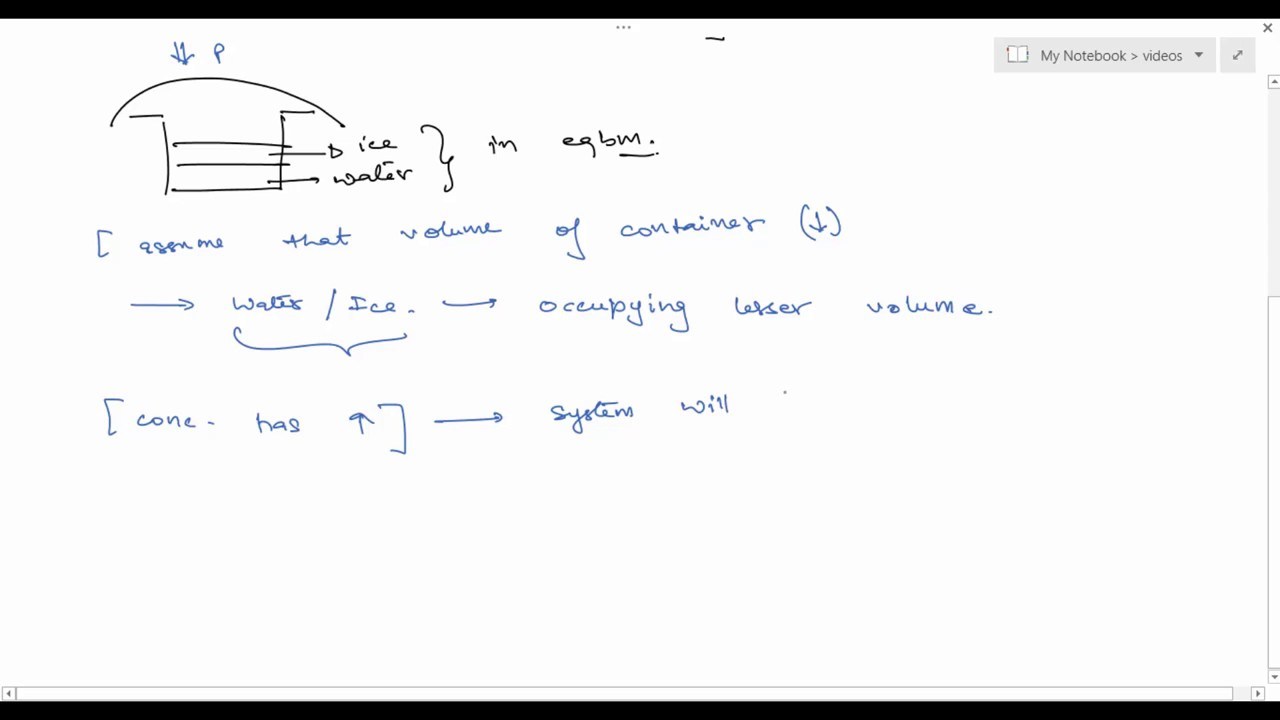 My Notebook > videos
↓↓ P
ice
water
in eqbm.
[ assume that volume of container (↓)
→ water / Ice. → occupying lesser volume.
[ conc. has ↑ ] → system will